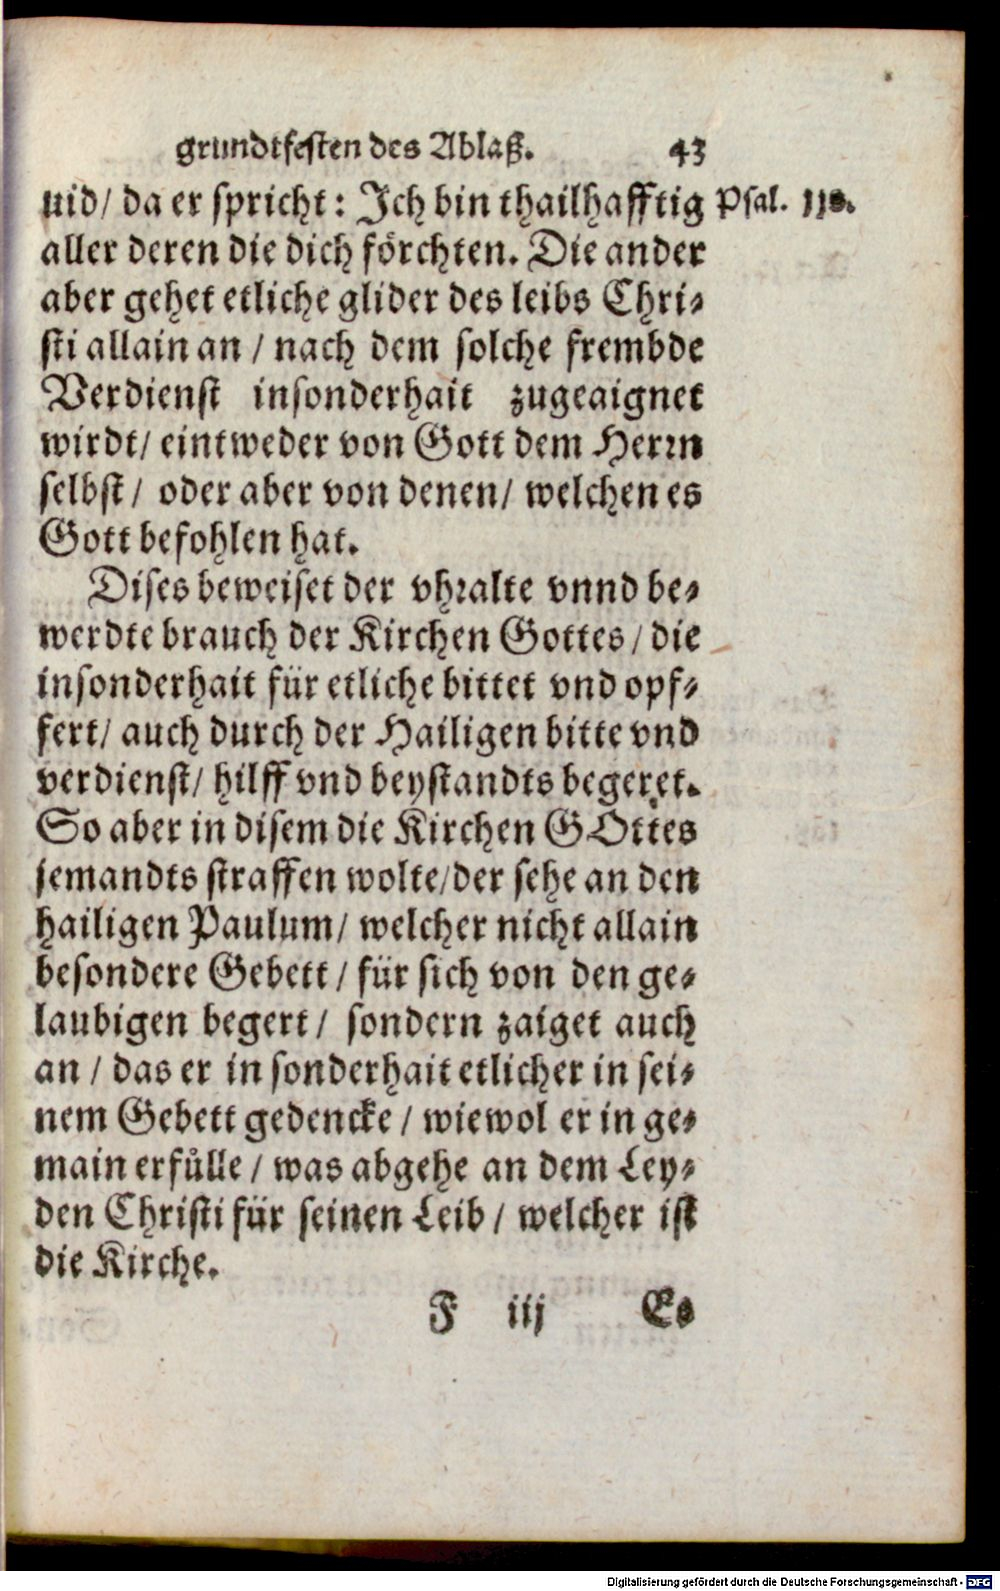 grundtfesten des Ablaß. 43
uid/ da er spricht: Ich bin thailhafftig Psal. 118.
aller deren die dich förchten. Die ander
aber gehet etliche glider des leibs Chri⸗
sti allain an / nach dem solche frembde
Verdienst insonderhait zugeaignet
wirdt/ eintweder von Gott dem Herrn
selbst/ oder aber von denen/ welchen es
Gott befohlen hat.
Dises beweiset der vhralte vnnd be⸗
werdte brauch der Kirchen Gottes/ die
insonderhait für etliche bittet vnd opf⸗
fert/ auch durch der Hailigen bitte vnd
verdienst/ hilff vnd beystandts begeret.
So aber in disem die Kirchen GOttes
jemandts straffen wolte/der sehe an den
hailigen Paulum/ welcher nicht allain
besondere Gebett / für sich von den ge⸗
laubigen begert/ sondern zaiget auch
an / das er in sonderhait etlicher in sei⸗
nem Gebett gedencke / wiewol er in ge⸗
main erfülle / was abgehe an dem Ley⸗
den Christi für seinen Leib / welcher ist
die Kirche.
F iij Es
Digitalisierung gefördert durch die Deutsche Forschungsgemeinschaft - DFG